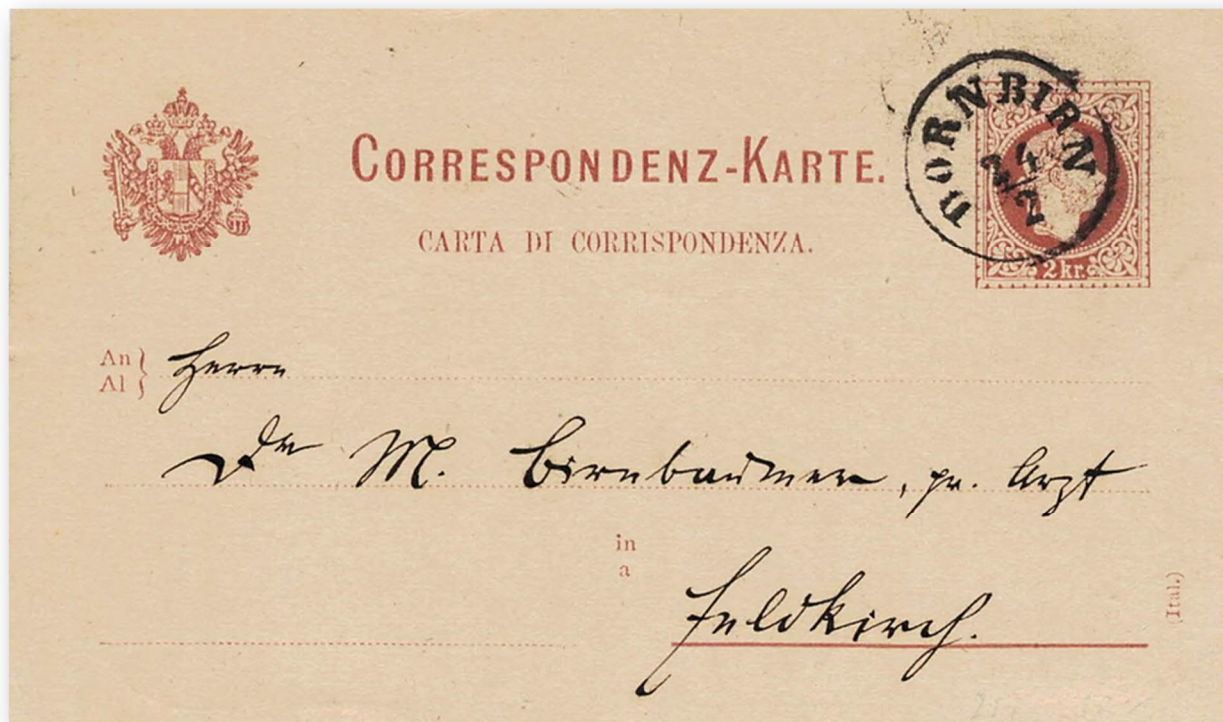 CORRESPONDENZ-KARTE.
CARTA DI CORRISPONDENZA.
DORNBIRN
24/2
2 kr.
An
Al
Herrn
Dr M. Birnbaumer, pr. Arzt
in
a
Feldkirch.
(Ital.)